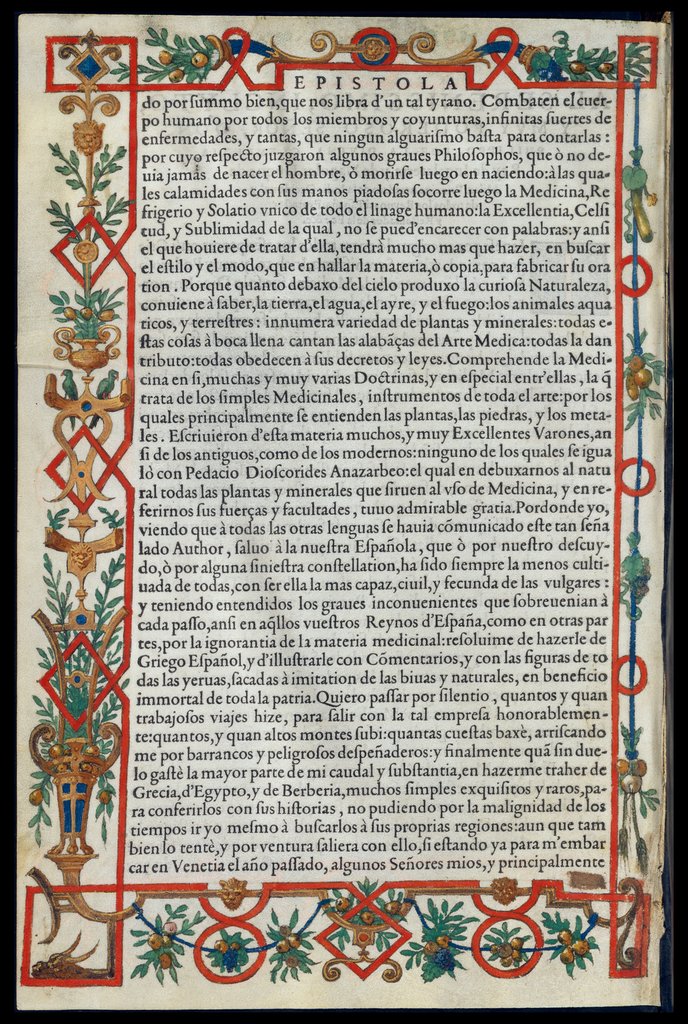 EPISTOLA
do por ſummo bien, que nos libra d'un tal tyrano. Combaten el cuer-
po humano por todos los miembros y coyunturas, infinitas ſuertes de
enfermedades, y tantas, que ningun alguariſmo baſta para contarlas :
por cuyo reſpecto juzgaron algunos graues Philoſophos, que ò no de-
uia jamás de nacer el hombre, ò morirſe luego en naciendo: à las qua-
les calamidades con sus manos piadoſas ſocorre luego la Medicina, Re
frigerio y Solatio vnico de todo el linage humano: la Excellentia, Celſi
tud, y Sublimidad de la qual, no se pued'encarecer con palabras: y anſi
el que houiere de tratar d'ella, tendrà mucho mas que hazer, en buſcar
el eſtilo y el modo, que en hallar la materia, ò copia, para fabricar ſu ora
tion. Porque quanto debaxo del cielo produxo la curioſa Naturaleza,
conuiene à ſaber, la tierra, el agua, el ayre, y el fuego: los animales aqua
ticos, y terreſtres: innumera variedad de plantas y minerales: todas e-
ſtas coſas à boca llena cantan las alabãças del Arte Medica: todas la dan
tributo: todas obedecen à ſus decretos y leyes. Comprehende la Medi-
cina en ſi, muchas y muy varias Doctrinas, y en eſpecial entr'ellas, la q̃
trata de los ſimples Medicinales, inſtrumentos de toda el arte: por los
quales principalmente ſe entienden las plantas, las piedras, y los meta-
les. Eſcriuieron d'eſta materia muchos, y muy Excellentes Varones, an
ſi de los antiguos, como de los modernos: ninguno de los quales ſe igua
lò con Pedacio Dioſcorides Anazarbeo: el qual en debuxarnos al natu
ral todas las plantas y minerales que ſiruen al vſo de Medicina, y en re-
ferirnos ſus fuerças y facultades, tuuo admirable gratia. Por donde yo,
viendo que à todas las otras lenguas ſe hauia cõmunicado eſte tan ſeña
lado Author, ſaluo à la nueſtra Eſpañola, que ò por nueſtro deſcuy-
do, ò por alguna ſinieſtra conſtellation, ha ſido ſiempre la menos culti-
uada de todas, con ſer ella la mas capaz, ciuil, y fecunda de las vulgares :
y teniendo entendidos los graues inconuenientes que ſobreuenian à
cada paſſo, anſi en aq̃llos vueſtros Reynos d'Eſpaña, como en otras par
tes, por la ignorantia de la materia medicinal: reſoluime de hazerle de
Griego Eſpañol, y d'illuſtrarle con Cõmentarios, y con las figuras de to
das las yeruas, ſacadas à imitation de las biuas y naturales, en beneficio
immortal de toda la patria. Quiero paſſar por ſilentio, quantos y quan
trabajoſos viajes hize, para ſalir con la tal empreſa honorablemen-
te: quantos, y quan altos montes ſubi: quantas cueſtas baxè, arriſcando
me por barrancos y peligroſos deſpeñaderos: y finalmente quã ſin due-
lo gaſtè la mayor parte de mi caudal y ſubſtantia, en hazerme traher de
Grecia, d'Egypto, y de Berberia, muchos ſimples exquiſitos y raros, pa-
ra conferirlos con ſus hiſtorias, no pudiendo por la malignidad de los
tiempos ir yo meſmo à buſcarlos à ſus proprias regiones: aun que tam
bien lo tentè, y por ventura ſaliera con ello, ſi eſtando ya para m'embar
car en Venetia el año paſſado, algunos Señores mios, y principalmente